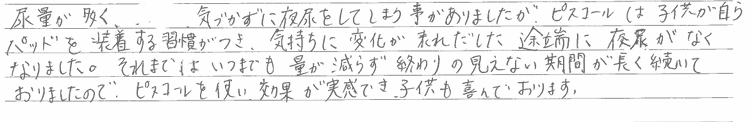 尿量が多く、... 気づかずに夜尿をしてしまう事がありましたが、ピスコールは子供が自ら
パッドを装着する習慣がつき、気持ちに変化が表れだした途端に夜尿がなく
なりました。それまではいつまでも量が減らず終わりの見えない期間が長く続いて
おりましたので、ピスコールを使い効果が実感でき、子供も喜んでおります。